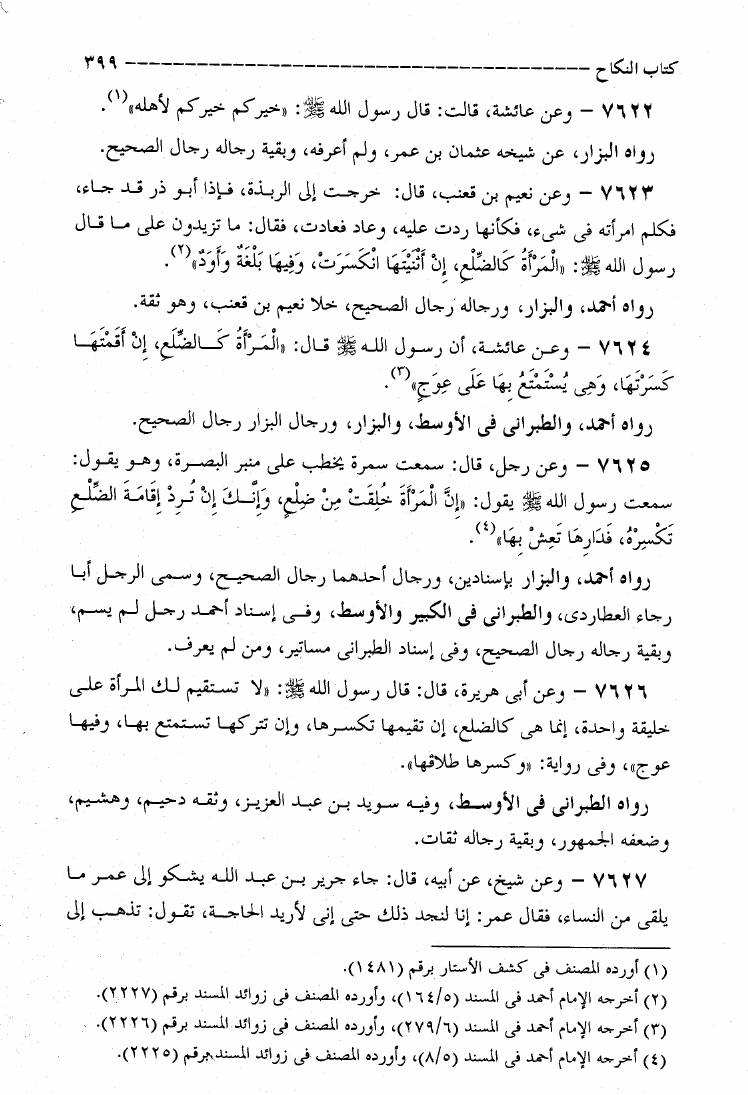 كتاب النكاح ------------------------------------- ٣٩٩
٧٦٢٢ – وعن عائشة، قالت: قال رسول الله ﷺ: «خيركم خيركم لأهله»(١).
رواه البزار، عن شيخه عثمان بن عمر، ولم أعرفه، وبقية رجاله رجال الصحيح.
٧٦٢٣ – وعن نعيم بن قعنب، قال: خرجت إلى الربذة، فإذا أبو ذر قد جاء،
فكلم امرأته فى شىء، فكأنها ردت عليه، وعاد فعادت، فقال: ما تزيدون على ما قال
رسول الله ﷺ: «الْمَرْأَةُ كَالضِّلَعِ، إِنْ أَثْنَيْتَهَا انْكَسَرَتْ، وَفِيهَا بَلْغَةٌ وَأَوَدٌ»(٢).
رواه أحمد، والبزار، ورجاله رجال الصحيح، خلا نعيم بن قعنب، وهو ثقة.
٧٦٢٤ – وعن عائشة، أن رسول الله ﷺ قال: «الْمَرْأَةُ كَالضِّلَعِ، إِنْ أَقَمْتَهَا
كَسَرْتَهَا، وَهِى يُسْتَمْتَعُ بِهَا عَلَى عِوَجٍ»(٣).
رواه أحمد، والطبرانى فى الأوسط، والبزار، ورجال البزار رجال الصحيح.
٧٦٢٥ – وعن رجل، قال: سمعت سمرة يخطب على منبر البصرة، وهو يقول:
سمعت رسول الله ﷺ يقول: «إِنَّ الْمَرْأَةَ خُلِقَتْ مِنْ ضِلْعٍ، وَإِنَّكَ إِنْ تُرِدْ إِقَامَةَ الضِّلْعِ
تَكْسِرْهُ، فَدَارِهَا تَعِشْ بِهَا»(٤).
رواه أحمد، والبزار بإسنادين، ورجال أحدهما رجال الصحيح، وسمى الرجل أبا
رجاء العطاردى، والطبرانى فى الكبير والأوسط، وفى إسناد أحمد رجل لم يسم،
وبقية رجاله رجال الصحيح، وفى إسناد الطبرانى مساتير، ومن لم يعرف.
٧٦٢٦ – وعن أبى هريرة، قال: قال رسول الله ﷺ: «لا تستقيم لك المرأة على
خليقة واحدة، إنما هى كالضلع، إن تقيمها تكسرها، وإن تتركها تستمتع بها، وفيها
عوج»، وفى رواية: «وكسرها طلاقها».
رواه الطبرانى فى الأوسط، وفيه سويد بن عبد العزيز، وثقه دحيم، وهشيم،
وضعفه الجمهور، وبقية رجاله ثقات.
٧٦٢٧ – وعن شيخ، عن أبيه، قال: جاء جرير بن عبد الله يشكو إلى عمر ما
يلقى من النساء، فقال عمر: إنا لنجد ذلك حتى إنى لأريد الحاجة، تقول: تذهب إلى
(١) أورده المصنف فى كشف الأستار برقم (١٤٨١).
(٢) أخرجه الإمام أحمد فى المسند (١٦٤/٥)، وأورده المصنف فى زوائد المسند برقم (٢٢٢٧).
(٣) أخرجه الإمام أحمد فى المسند (٢٧٩/٦)، وأورده المصنف فى زوائد المسند برقم (٢٢٢٦).
(٤) أخرجه الإمام أحمد فى المسند (٨/٥)، وأورده المصنف فى زوائد المسند برقم (٢٢٢٥).